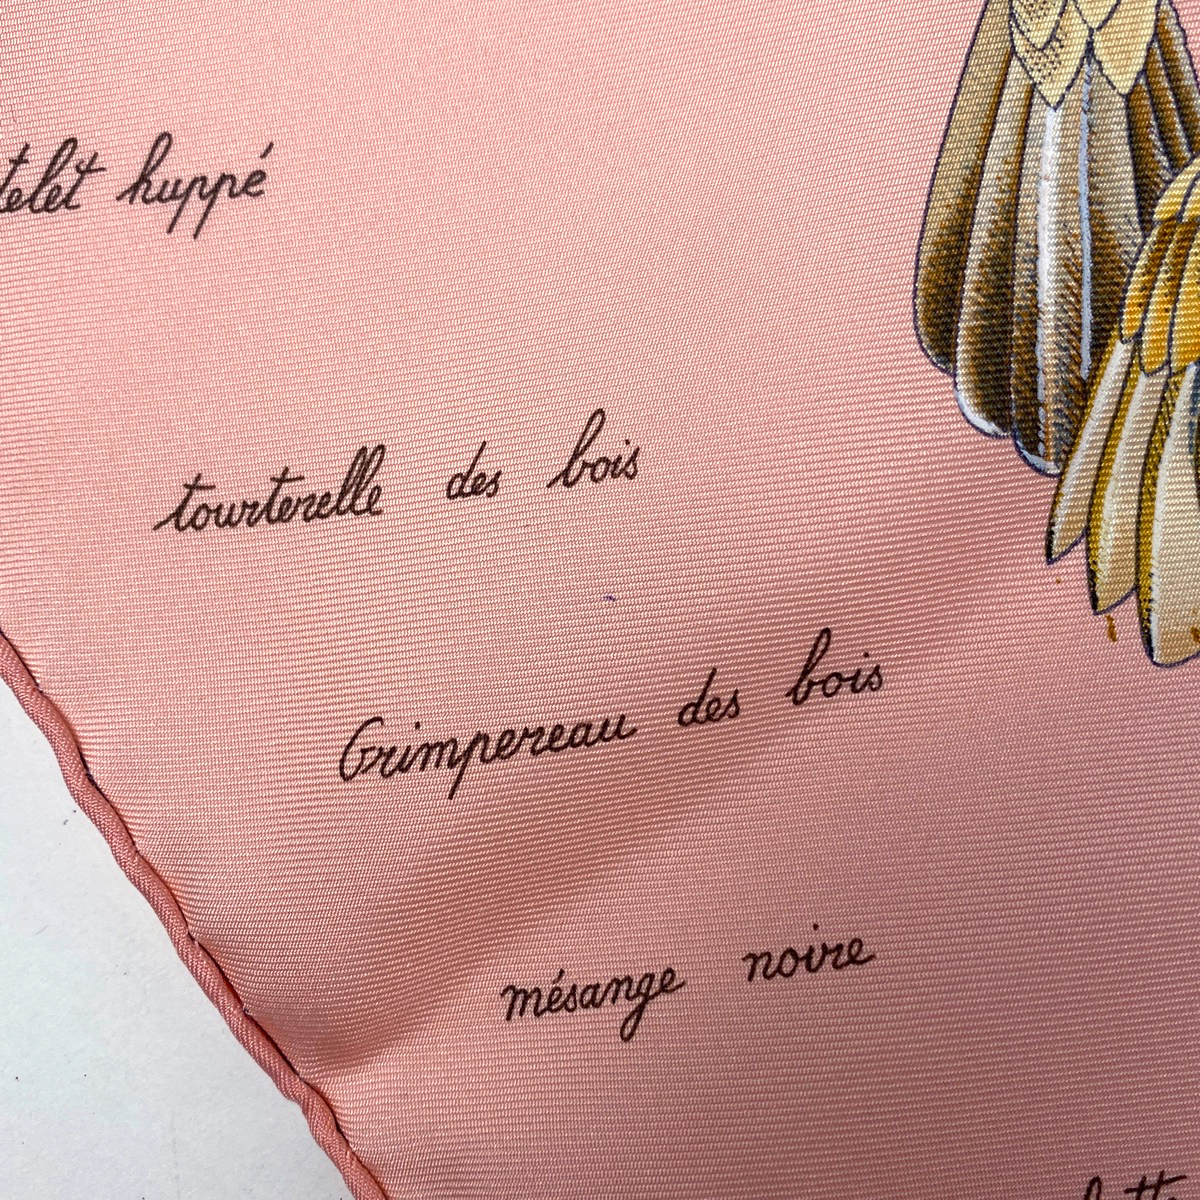 telet huppé
tourterelle des bois
Grimpereau des bois
mésange noire